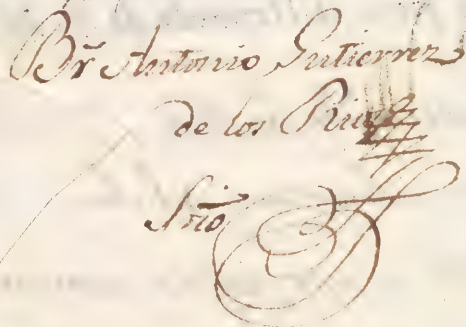 Br Antonio Gutierrez
de los Rios
Srio